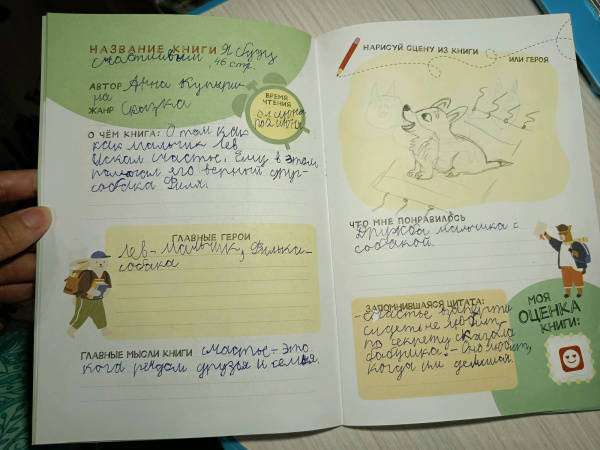 НАЗВАНИЕ КНИГИ Я буду
счастливый, 46 стр.
АВТОР Анна Куприна
ЖАНР Сказка
ВРЕМЯ
ЧТЕНИЯ
О ЧЁМ КНИГА: О том как
как мальчик Лев
искал счастье. Ему в этом
помогал его верный друг-
собака Филя.
ГЛАВНЫЕ ГЕРОИ
Лев-мальчик,
собака
ГЛАВНЫЕ МЫСЛИ КНИГИ счастье-это
кога рядом друзья и семья.
НАРИСУЙ СЦЕНУ ИЗ КНИГИ
ИЛИ ГЕРОЯ
ЧТО МНЕ ПОНРАВИЛОСЬ
Дружба мальчика с
собакой.
ЗАПОМНИВШАЯСЯ ЦИТАТА:
-Счастье взаперти
сидеть не любит-
по секрету сказала
бабушка.- Оно любит,
когда им делишся.
МОЯ
ОЦЕНКА
КНИГИ: